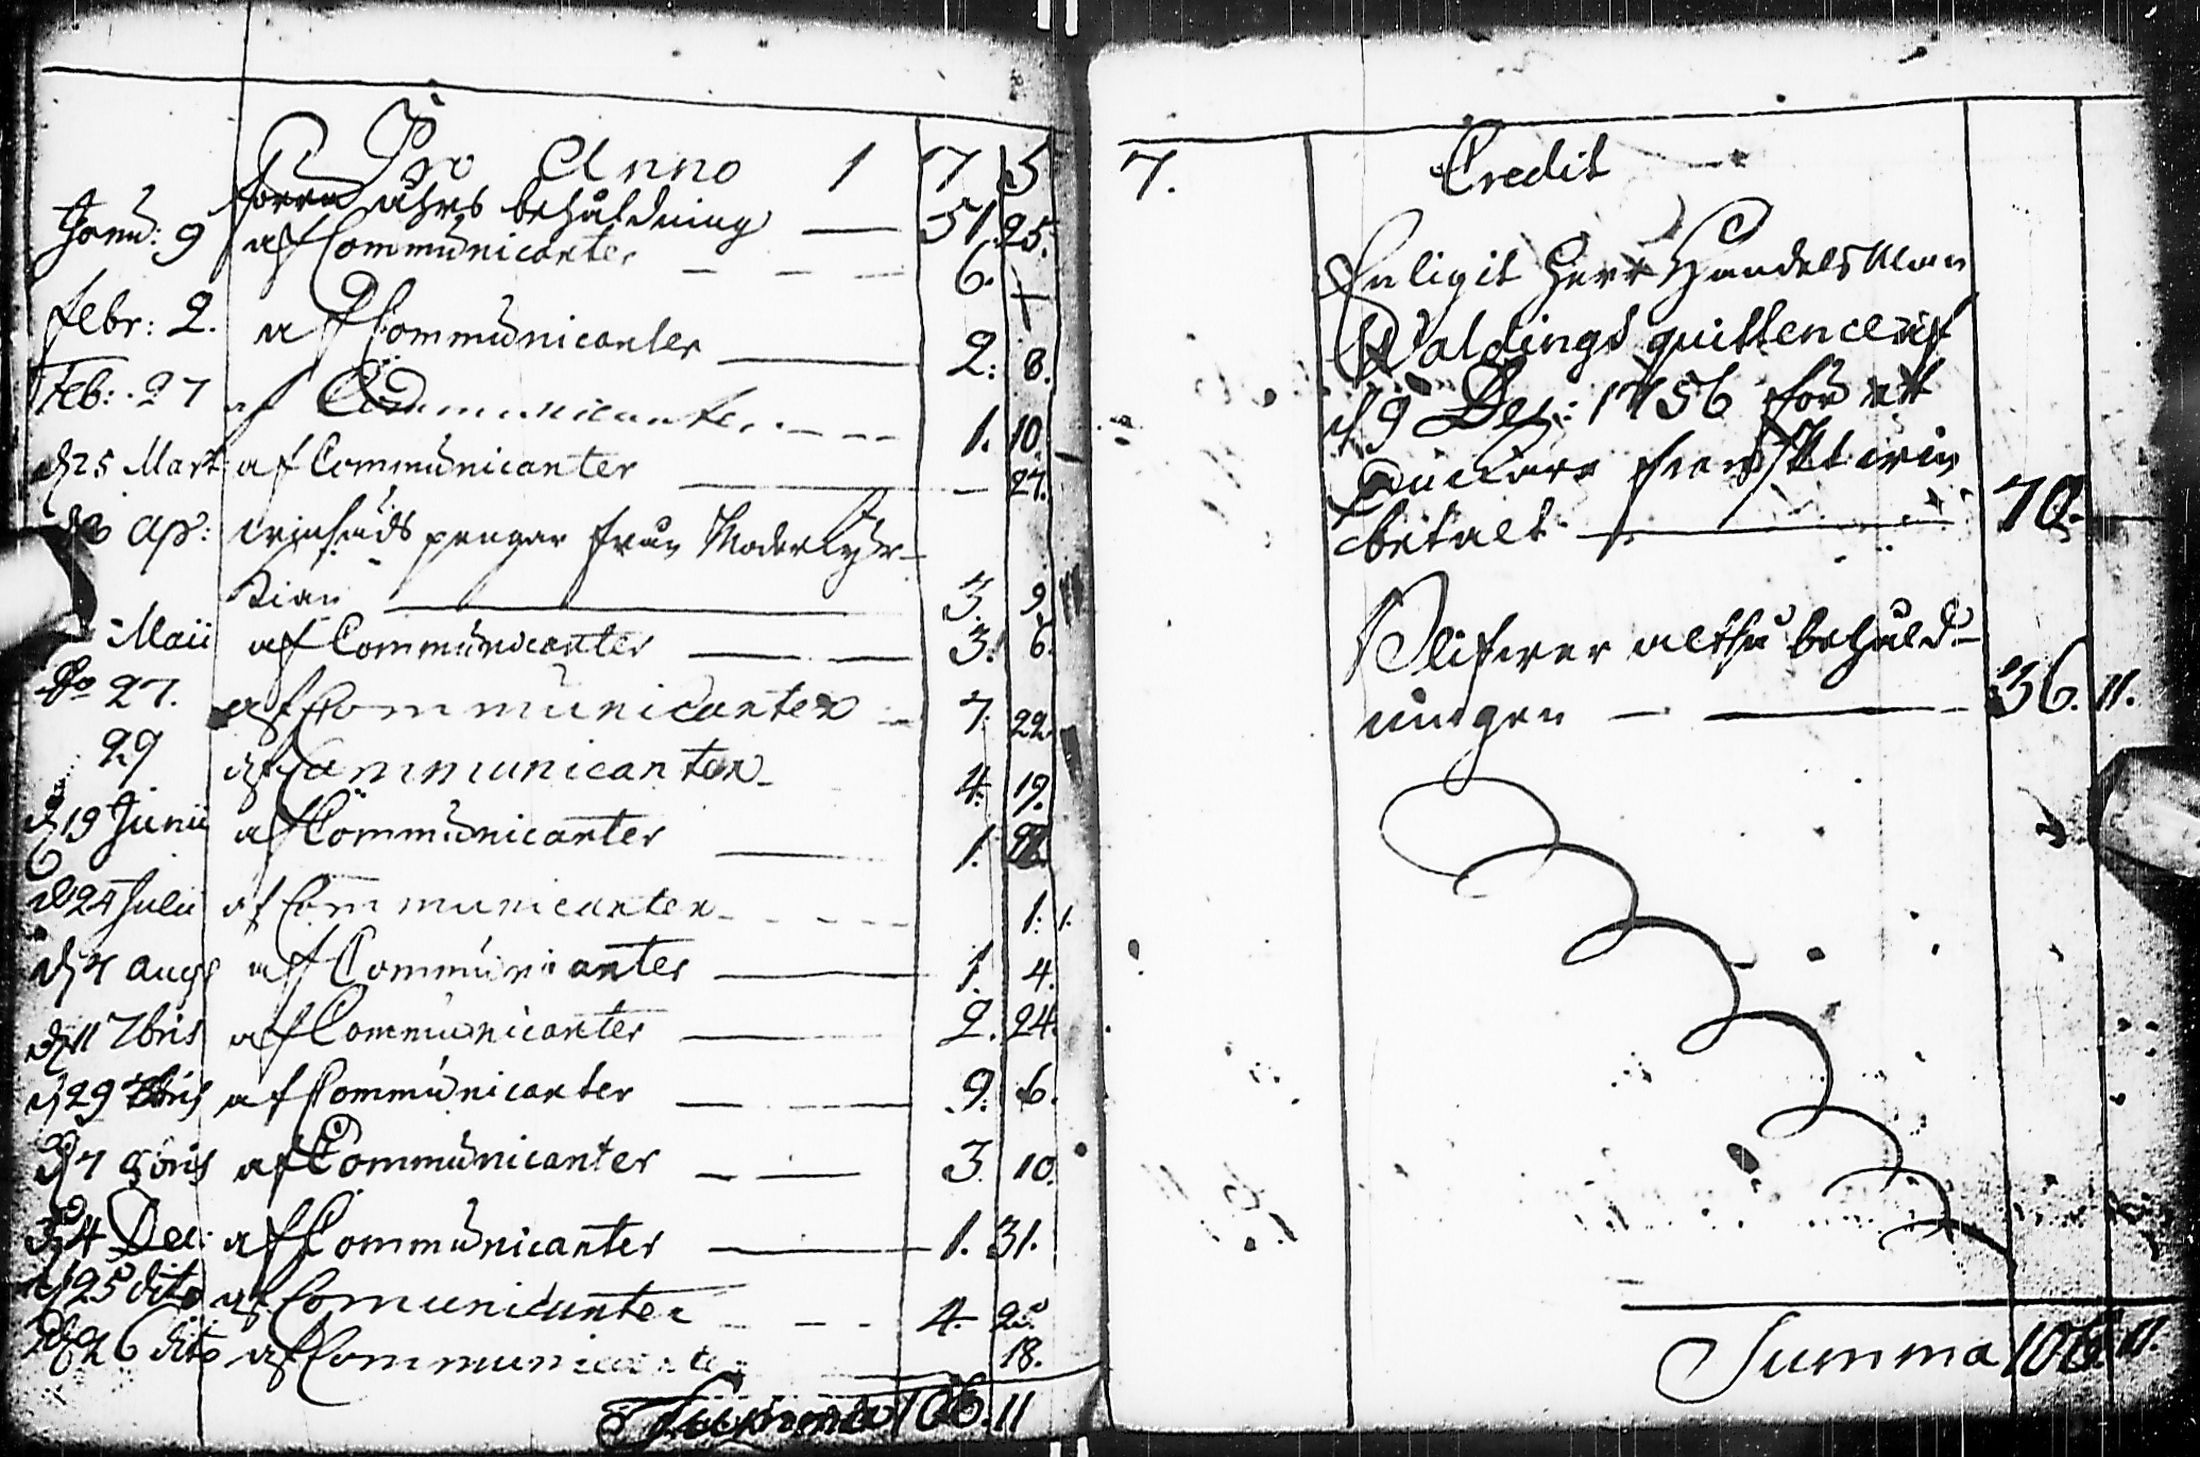 Pro Anno 1 7 5
förra åhrs behåldning — 51. 25.
Janu: 9 af Communicanter — 6. +
Febr: 2. af Communicanter — 2: 8.
Feb: 27 af Communicanter — 1. 10.
d 25 Mart: af Communicanter — 27.
Ap: pengar från Moderkyr-
kian — 3. 9.
Maii af Communicanter — 3. 6.
do 27. af Communicanter — 7. 22
29 af Communicanter 4. 19.
d 19 Junii af Communicanter — 1.
d 24 Julii af Communicanter — 1. 1.
d 7 aug af Communicanter — 1. 4.
d 11 7bris af Communicanter — 2. 24.
d 29 af Communicanter — 9. 6.
d 7 af Communicanter — 3. 10.
d 4 Dec: af Communicanter — 1. 31.
d 25 dito af Comunicanter — 4. 2.
d 26 dito af Communicanter 18.
Summa 106. 11
7. Credit
Enligit Herr Handelsman
quittence af
d 9 Dec: 1756 för
betalt — 70.
Blifver altså behåld-
ningen — 36. 11.
Summa 106 11.